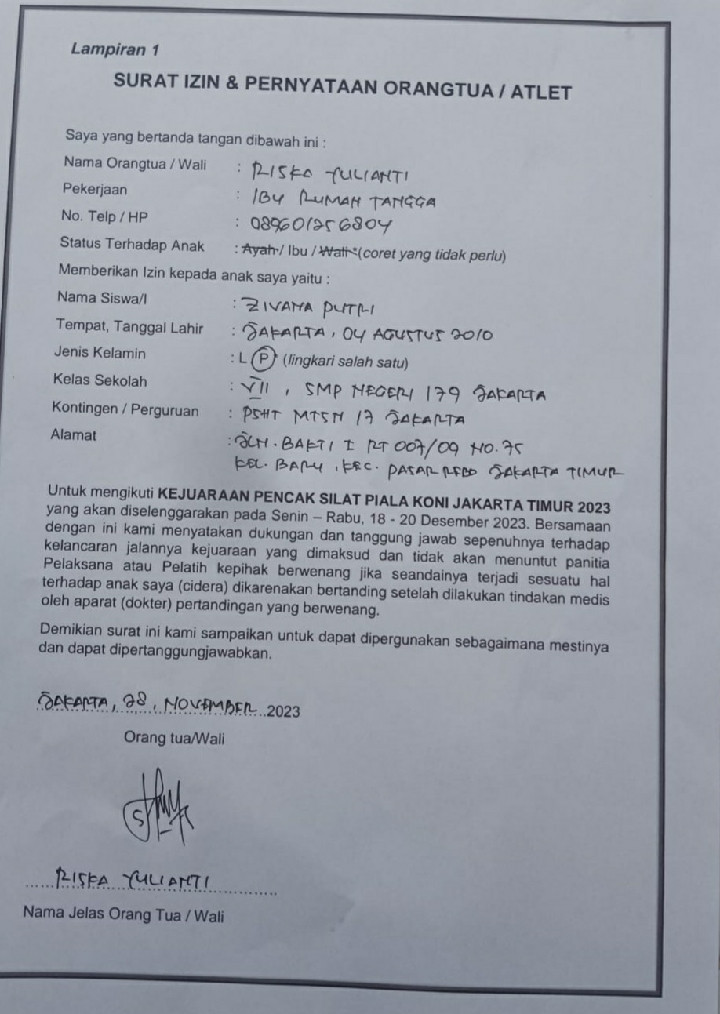 Lampiran 1
SURAT IZIN & PERNYATAAN ORANGTUA / ATLET
Saya yang bertanda tangan dibawah ini :
Nama Orangtua / Wali : RISKA YULIANTI
Pekerjaan : IBU RUMAH TANGGA
No. Telp / HP : 089601256804
Status Terhadap Anak : Ayah / Ibu / Wali *(coret yang tidak perlu)
Memberikan Izin kepada anak saya yaitu :
Nama Siswa/I : ZIVANA PUTRI
Tempat, Tanggal Lahir : JAKARTA, 04 AGUSTUS 2010
Jenis Kelamin : L P * (lingkari salah satu)
Kelas Sekolah : VII , SMP NEGERI 179 JAKARTA
Kontingen / Perguruan : PSHT MTSN 17 JAKARTA
Alamat : JLN. BAKTI I RT 007/09 NO. 75
KEL. BARU , KEC. PASAR REBO JAKARTA TIMUR
Untuk mengikuti KEJUARAAN PENCAK SILAT PIALA KONI JAKARTA TIMUR 2023
yang akan diselenggarakan pada Senin – Rabu, 18 - 20 Desember 2023. Bersamaan
dengan ini kami menyatakan dukungan dan tanggung jawab sepenuhnya terhadap
kelancaran jalannya kejuaraan yang dimaksud dan tidak akan menuntut panitia
Pelaksana atau Pelatih kepihak berwenang jika seandainya terjadi sesuatu hal
terhadap anak saya (cidera) dikarenakan bertanding setelah dilakukan tindakan medis
oleh aparat (dokter) pertandingan yang berwenang.
Demikian surat ini kami sampaikan untuk dapat dipergunakan sebagaimana mestinya
dan dapat dipertanggungjawabkan.
JAKARTA, 28, NOVEMBER 2023
Orang tua/Wali
RISKA YULIANTI
Nama Jelas Orang Tua / Wali